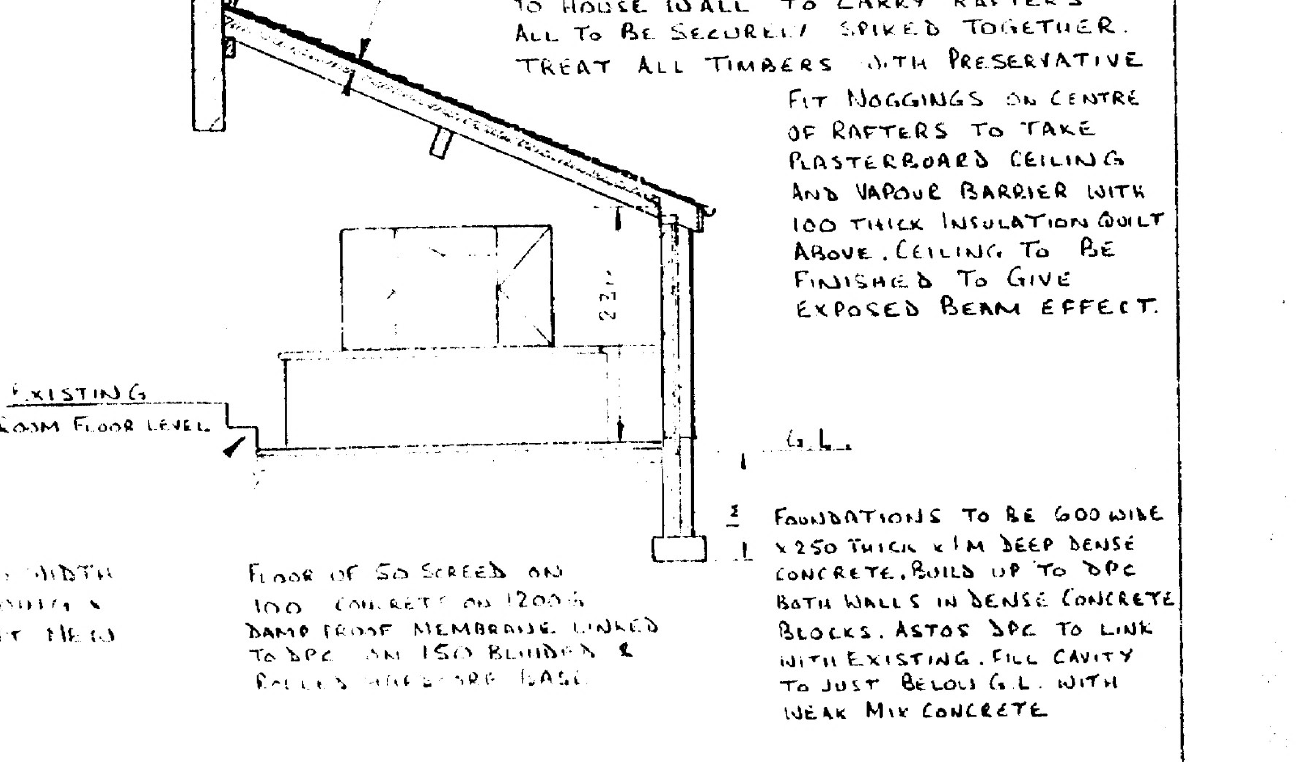 TO HOUSE WALL TO CARRY RAFTERS
ALL TO BE SECURELY SPIKED TOGETHER.
TREAT ALL TIMBERS WITH PRESERVATIVE
FIT NOGGINGS ON CENTRE
OF RAFTERS TO TAKE
PLASTERBOARD CEILING
AND VAPOUR BARRIER WITH
100 THICK INSULATION QUILT
ABOVE. CEILING TO BE
FINISHED TO GIVE
EXPOSED BEAM EFFECT.
EXISTING
ROOM FLOOR LEVEL
G.L.
FOUNDATIONS TO BE 600 WIDE
x 250 THICK x 1M DEEP DENSE
CONCRETE. BUILD UP TO DPC
BOTH WALLS IN DENSE CONCRETE
BLOCKS. ASTOS DPC TO LINK
WITH EXISTING. FILL CAVITY
TO JUST BELOW G.L. WITH
WEAK MIX CONCRETE
FLOOR OF 50 SCREED ON
100 CONCRETE ON 1200G
DAMP PROOF MEMBRANE LINKED
TO DPC ON 150 BLINDED &
ROLLED HARDCORE BASE
WIDTH
NEW